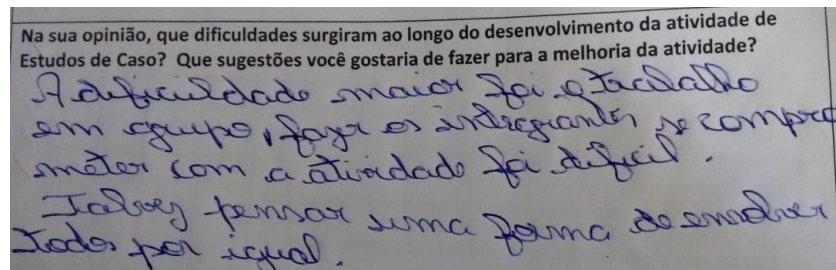 Na sua opinião, que dificuldades surgiram ao longo do desenvolvimento da atividade de
Estudos de Caso? Que sugestões você gostaria de fazer para a melhoria da atividade?
A dificuldade maior foi o trabalho
em grupo, fazer os integrantes se compro
meter com a atividade foi dificil.
Talvez pensar uma forma de envolver
todos por igual.